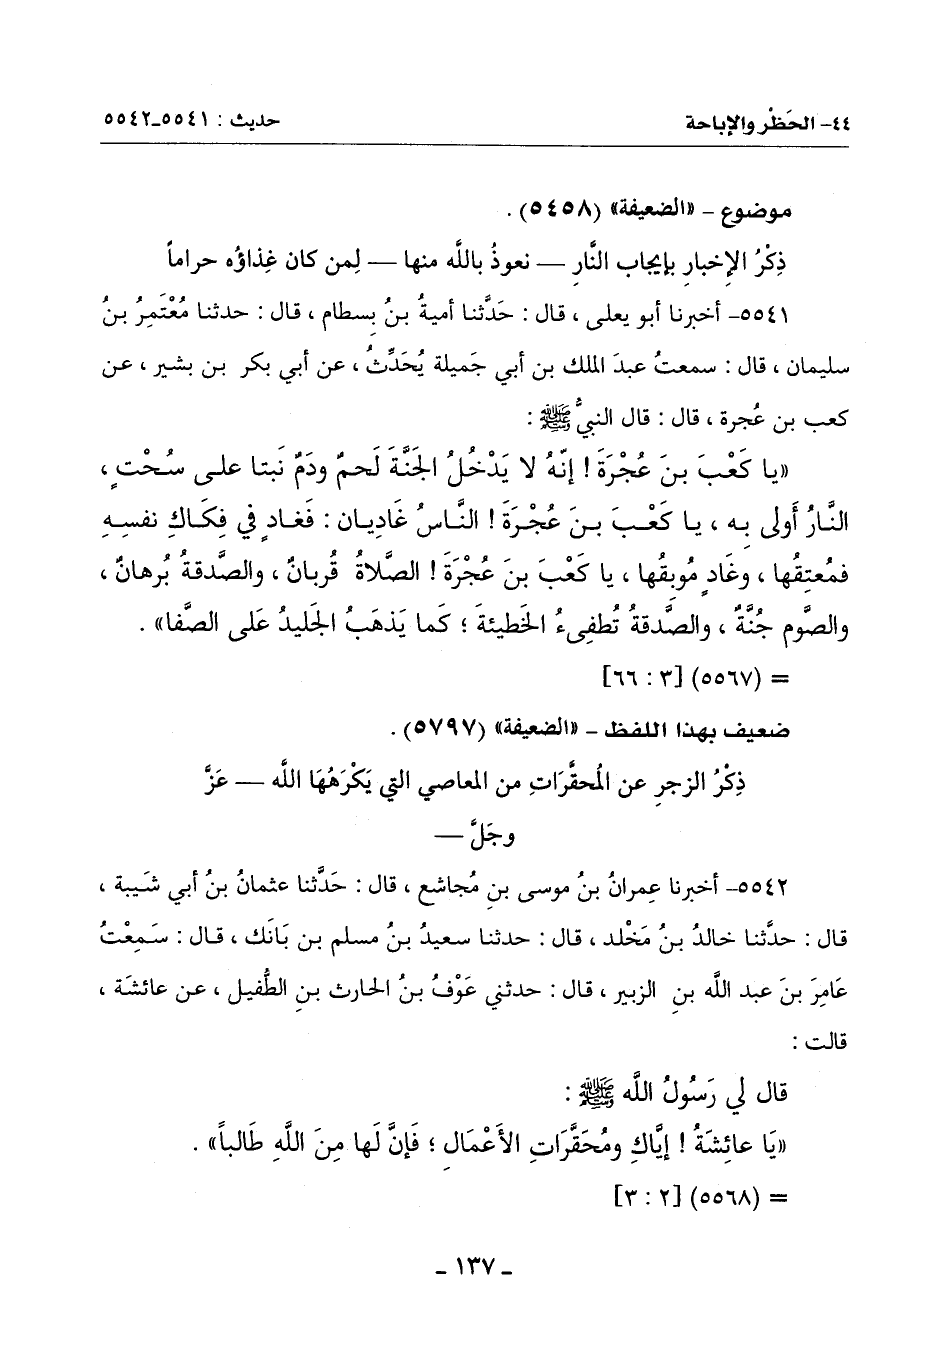 ٤٤- الحَظْر والإباحة حديث : ٥٥٤١-٥٥٤٢
موضوع - «الضعيفة» (٥٤٥٨) .
ذِكْرُ الإخبارِ بإيجاب النَّارِ — نعوذُ باللَّه منها — لِمن كان غِذاؤه حراماً
٥٥٤١- أخبرنا أبو يعلى ، قال : حَدَّثنا أميةُ بنُ بِسطام ، قال : حدثنا مُعْتَمِرُ بنُ
سليمان ، قال : سمعتُ عبدَ الملك بن أبي جَميلة يُحَدِّثُ ، عن أبي بكر بن بشير ، عن
كعب بن عُجرة ، قال : قال النبيُّ ﷺ :
«يا كَعْبَ بنَ عُجْرَةَ ! إنّهُ لا يَدْخُلُ الجَنَّةَ لَحمٌ ودَمٌ نَبتا على سُحْتٍ ،
النَّارُ أَولى بِه ، يا كَعْبَ بنَ عُجْرَةَ ! النَّاسُ غَادِيان : فَغادٍ في فِكَاكِ نفسِهِ
فمُعتِقُها ، وغَادٍ مُوبِقُها ، يا كَعْبَ بنَ عُجْرَةَ ! الصَّلاةُ قُربانٌ ، والصَّدقةُ بُرهانٌ ،
والصَّوم جُنَّةٌ ، والصَّدقةُ تُطفِىءُ الخَطيئةَ ؛ كَما يَذهَبُ الجَليدُ عَلى الصَّفا» .
= (٥٥٦٧) [٣ : ٦٦]
ضعيف بهذا اللفظ - «الضعيفة» (٥٧٩٧) .
ذِكْرُ الزجرِ عن المُحقَّرَاتِ من المعاصي التي يَكْرَهُهَا اللَّه — عَزَّ
وجَلَّ —
٥٥٤٢- أخبرنا عِمرانُ بنُ موسى بنِ مُجاشع ، قال : حَدَّثنا عثمانُ بنُ أبي شَيبة ،
قال : حدَّثنا خالدُ بنُ مَخْلد ، قال : حدثنا سعيدُ بنُ مسلم بن بَانَك ، قال : سَمِعْتُ
عَامِرَ بنَ عبد اللَّه بنِ الزبير ، قال : حدثني عَوْفُ بنُ الحارث بنِ الطُّفيل ، عن عائشَة ،
قالت :
قال لي رَسُولُ اللَّه ﷺ :
«يَا عائِشَةُ ! إيَّاكِ ومُحَقَّرَاتِ الأَعْمَال ؛ فَإنَّ لَها مِنَ اللَّهِ طَالباً» .
= (٥٥٦٨) [٢ : ٣]
- ١٣٧ -